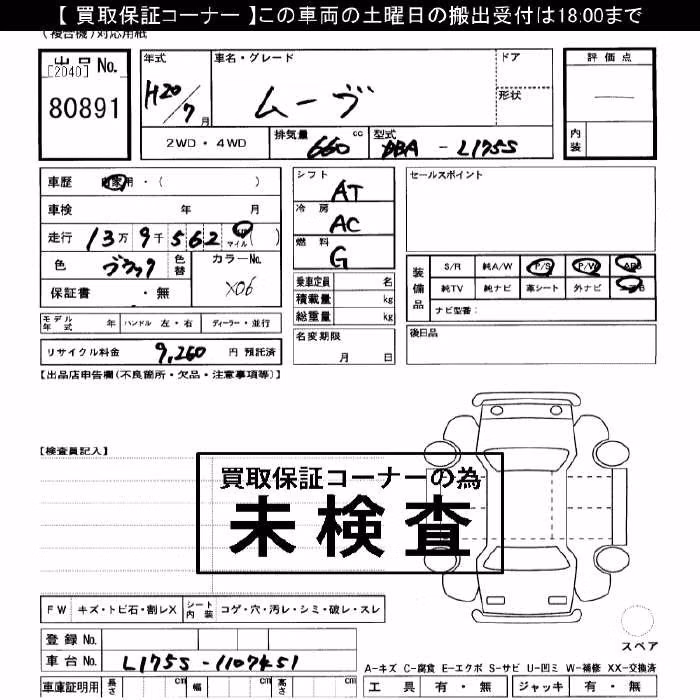 【 買取保証コーナー 】この車両の土曜日の搬出受付は18:00まで
(複合機)対応用紙
出品 No.
[2040]
80891
年式
H20/7 月
車名・グレード
ムーヴ
ドア
形状
評価点
内装
2WD・4WD
排気量 660 cc
型式 DBA - L175S
車歴 自家用・( )
車検 年 月
走行 13万9千562 マイル( )
色 ブラック
色替
カラーNo.
X06
保証書 ・無
シフト AT
冷房 AC
燃料 G
乗車定員 名
積載量 kg
総重量 kg
セールスポイント
装備品
S/R 純A/W P/S P/W ABS
純TV 純ナビ 革シート 外ナビ
ナビ型番:
モデル年式 年 ハンドル 左・右 ディーラー・並行
リサイクル料金 9,260 円 預託済
名変期限
月 日
後日品
【出品店申告欄(不良箇所・欠品・注意事項等)】
【検査員記入】
買取保証コーナーの為
未検査
FW キズ・トビ石・割レX シート内装 コゲ・穴・汚レ・シミ・破レ・スレ
登録 No.
車台 No. L175S-1107451
車庫証明用 長さ cm 幅 cm 高さ cm
スペア
A-キズ C-腐食 E-エクボ S-サビ U-凹ミ W-補修 XX-交換済
工具 有・無 ジャッキ 有・無